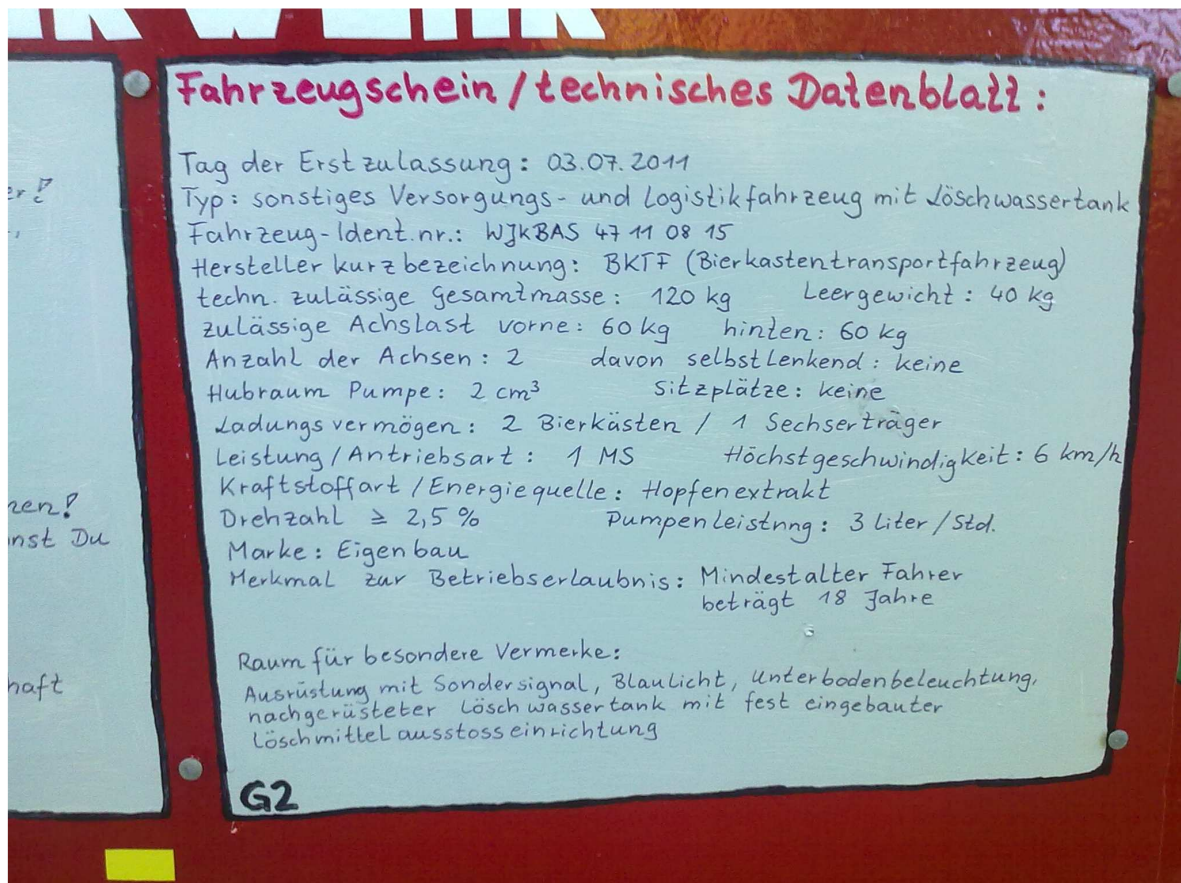 Fahrzeugschein / technisches Datenblatt :
Tag der Erstzulassung : 03.07.2011
Typ : sonstiges Versorgungs- und Logistikfahrzeug mit Löschwassertank
Fahrzeug-Ident.nr.: WJKBAS 47 11 08 15
Hersteller kurzbezeichnung : BKTF (Bierkastentransportfahrzeug)
techn. zulässige Gesamtmasse : 120 kg Leergewicht : 40 kg
zulässige Achslast vorne : 60 kg hinten : 60 kg
Anzahl der Achsen : 2 davon selbstlenkend : keine
Hubraum Pumpe : 2 cm³ Sitzplätze : keine
Ladungsvermögen : 2 Bierkästen / 1 Sechserträger
Leistung / Antriebsart : 1 MS Höchstgeschwindigkeit : 6 km/h
Kraftstoffart / Energiequelle : Hopfenextrakt
Drehzahl ≥ 2,5 % Pumpenleistnng : 3 Liter / Std.
Marke : Eigenbau
Merkmal zur Betriebserlaubnis : Mindestalter Fahrer
beträgt 18 Jahre
Raum für besondere Vermerke :
Ausrüstung mit Sondersignal, Blaulicht, Unterbodenbeleuchtung,
nachgerüsteter Löschwassertank mit fest eingebauter
Löschmittelausstosseinrichtung
G2
er!
nen!
nst Du
haft